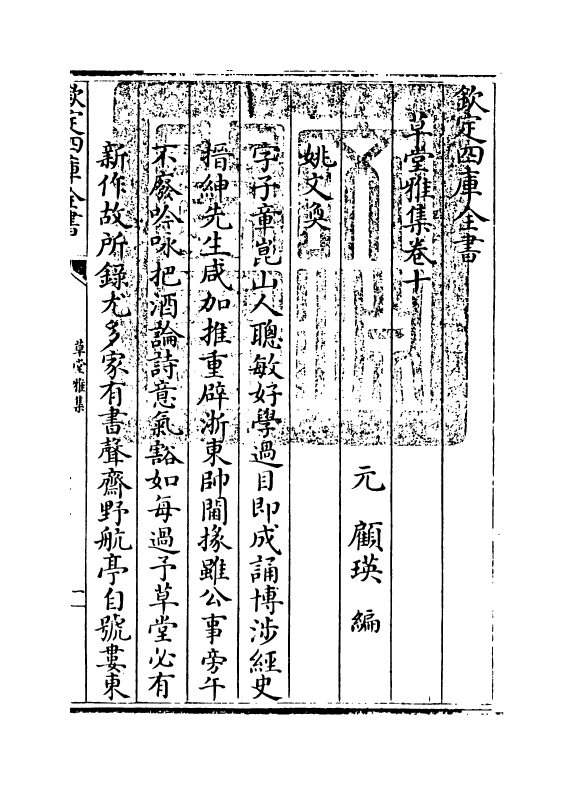 欽定四庫全書
草堂雅集卷十
元　顧瑛　編
姚文奐
字子章崑山人聰敏好學過目即成誦博涉經史
搢紳先生咸加推重辟浙東帥閫掾雖公事旁午
不廢吟咏把酒論詩意氣豁如每過予草堂必有
新作故所錄尤多家有書聲齋野航亭自號婁東
欽定四庫全書
草堂雅集
一